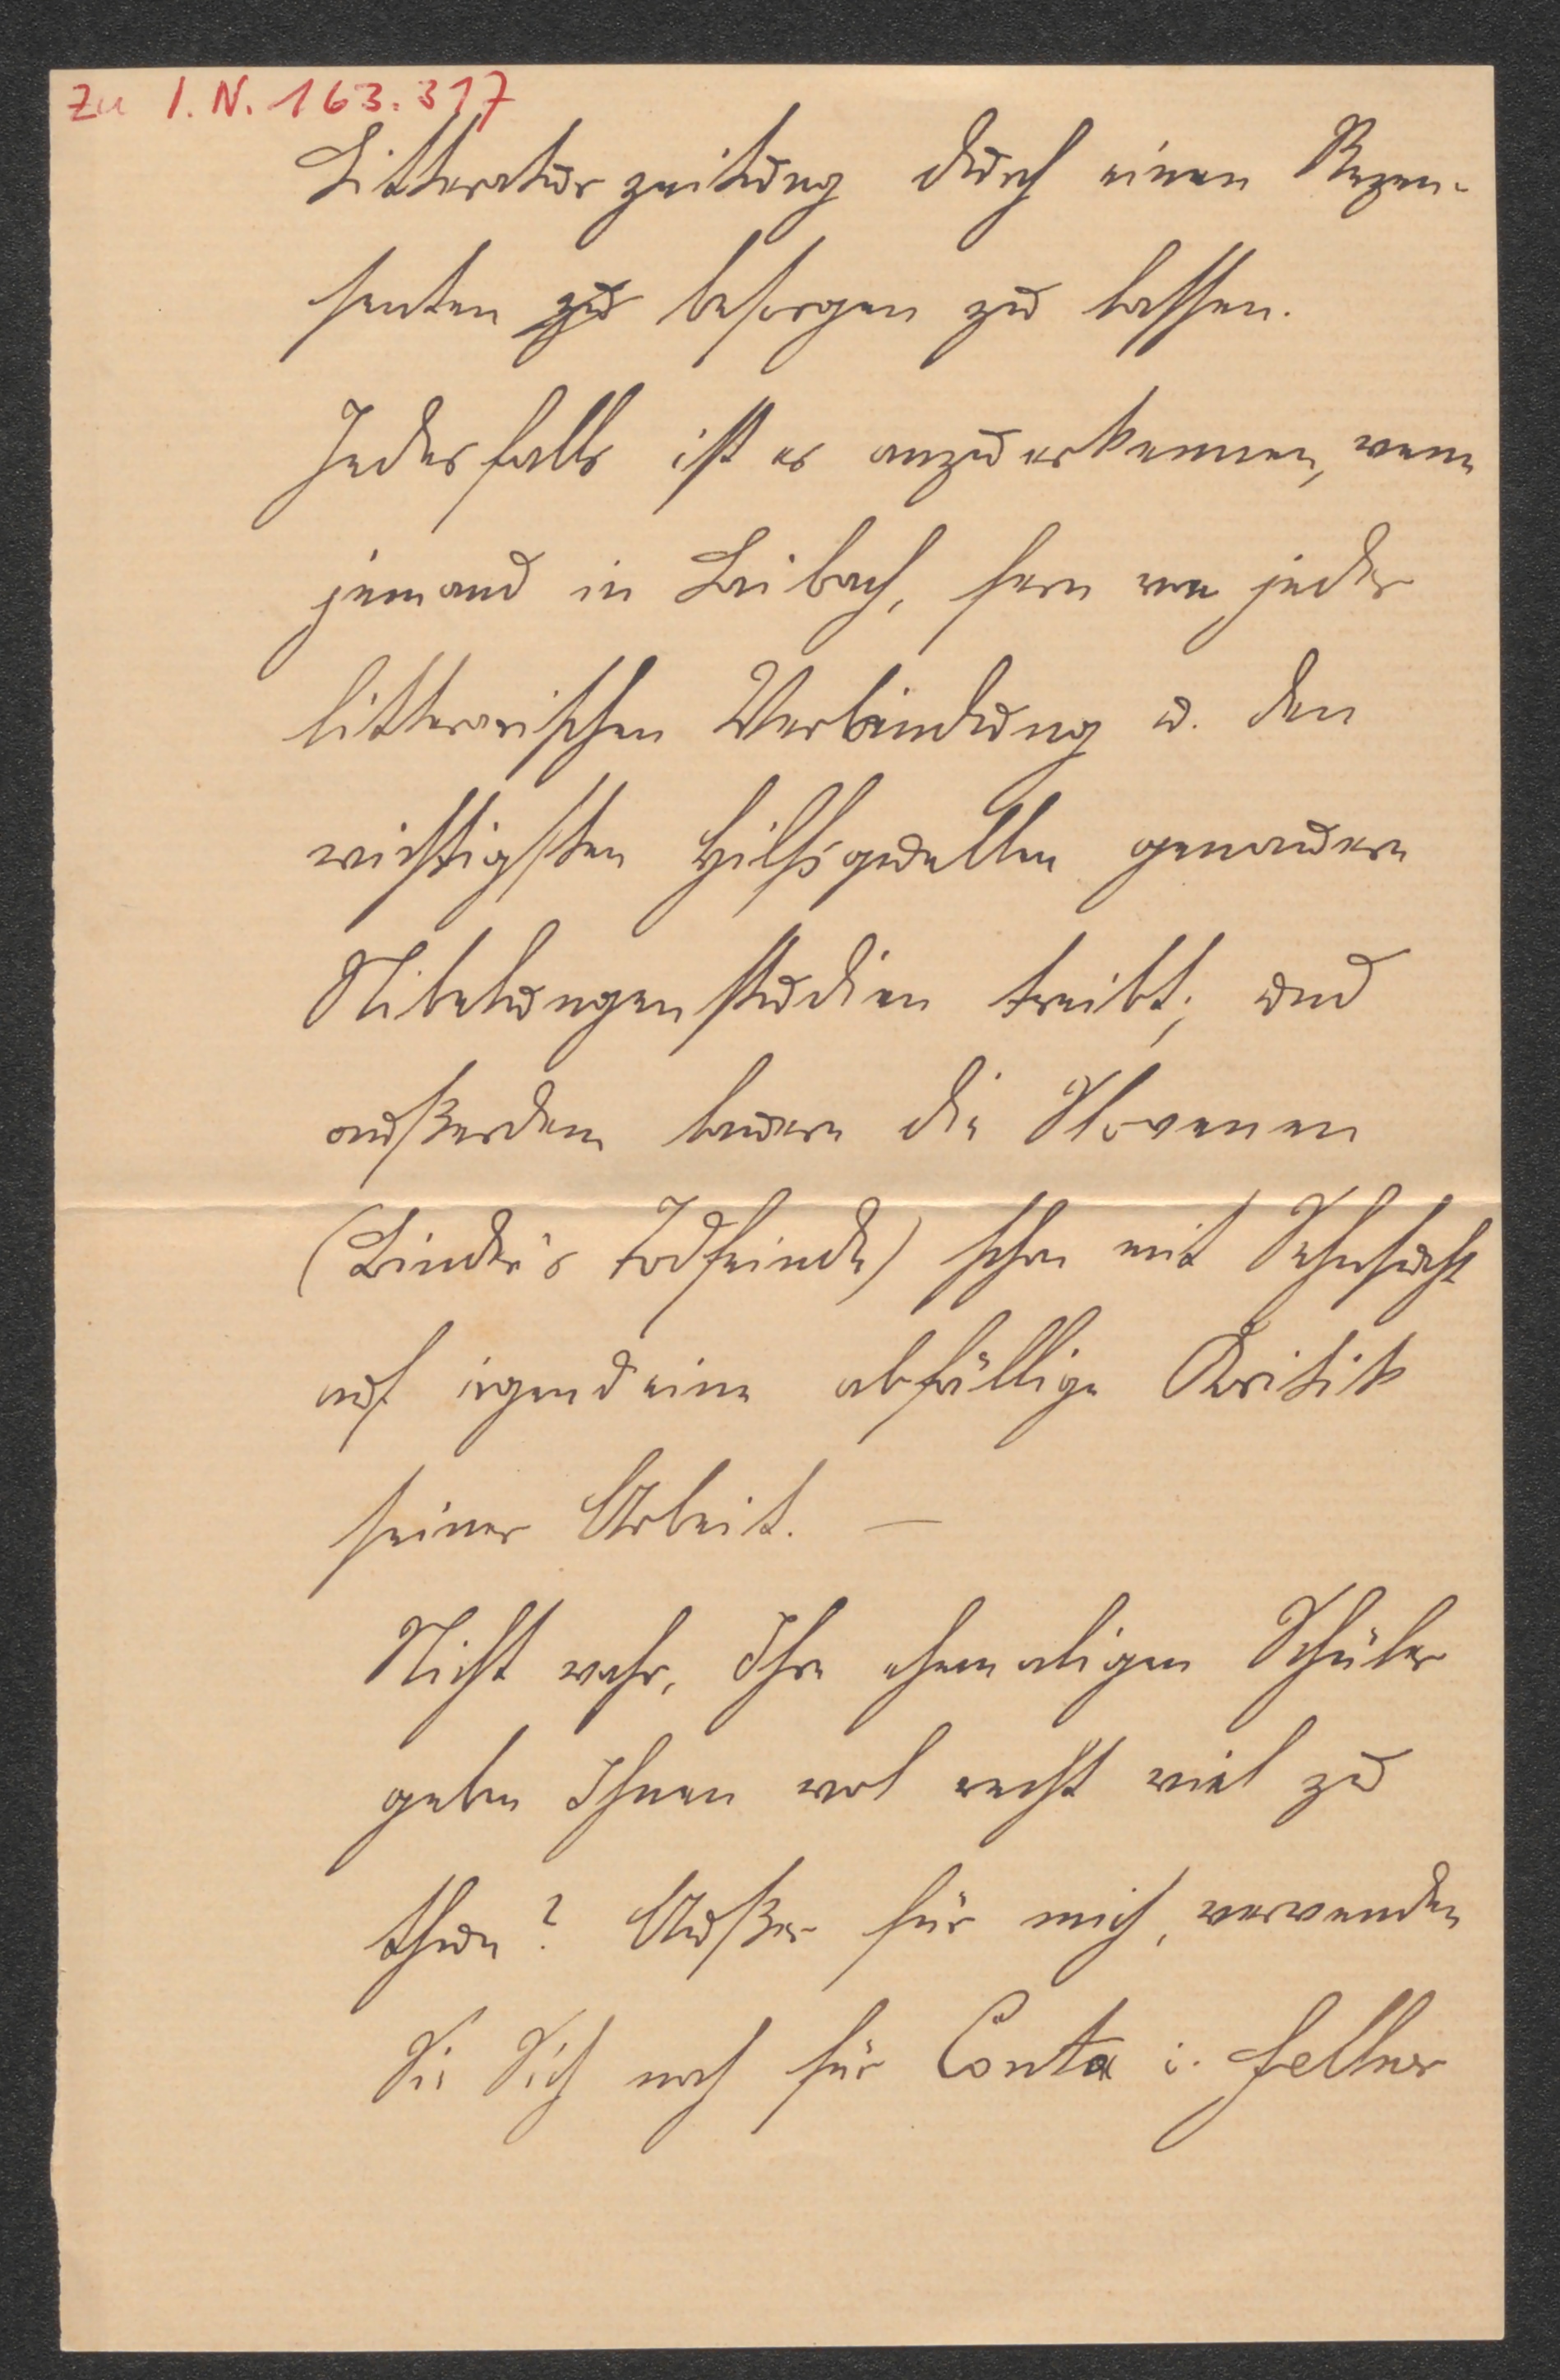 Zu I.N. 163.317
Litteraturzeitung durch einen Rezen-
senten zu besorgen zu lassen.
Jedesfalls ist es anzuerkennen, wenn
jemand in Laibach, fern von jeder
litterarischen Verbindung u. den
wichtigsten Hilfsquellen genauere
Nibelungenstudien treibt; und
außerdem lauern die Slovenen
(Binder's Todfeinde) schon mit Sehnsucht
auf irgend eine abfällige Kritik
seiner Arbeit. —
Nicht wahr, Ihre ehemaligen Schüler
geben Ihnen wol recht viel zu
thun? Außer für mich, verwenden
Sie Sich noch für Conta u. Fellner